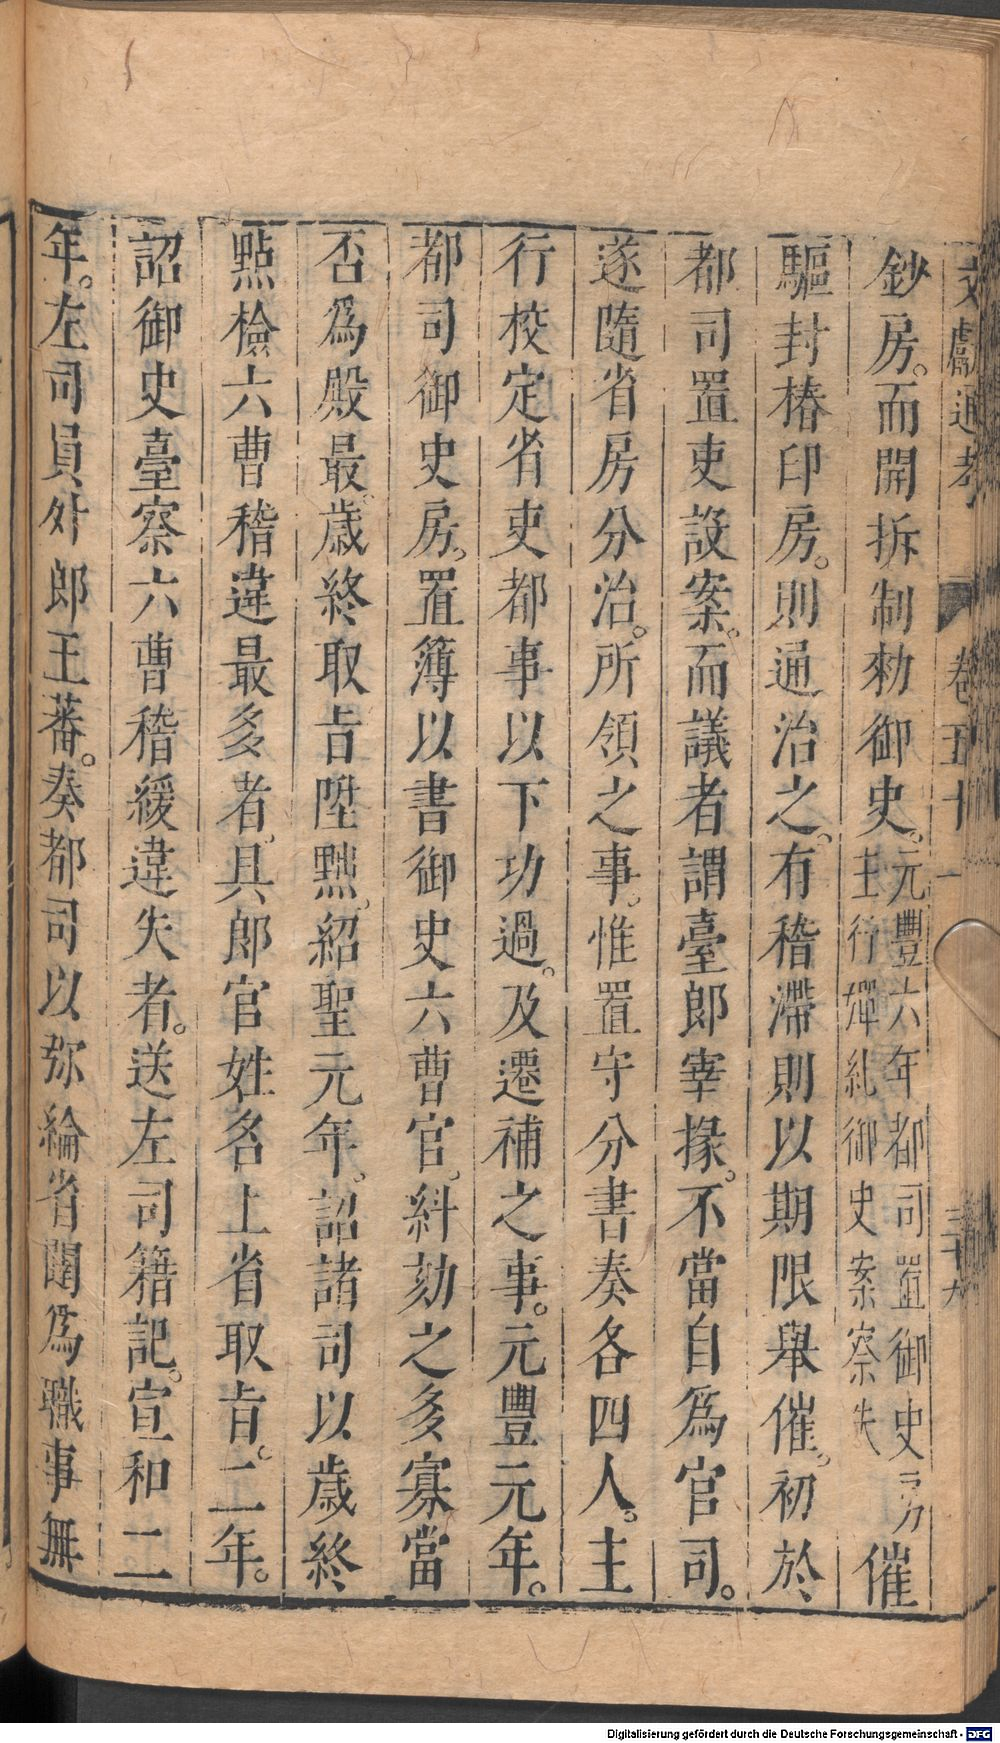 文獻通考 卷五十一 三十九
鈔房。而開拆制勑御史。元豐六年都司置御史房主行彈糺御史案察失催
驅封樁印房。則通治之。有稽滯則以期限舉催。初於
都司置吏設案。而議者謂臺郎宰掾。不當自爲官司。
遂隨省房分治。所領之事。惟置守分書奏各四人。主
行校定省吏都事以下功過。及遷補之事。元豐元年。
都司御史房。置簿以書御史六曹官。糾劾之多寡當
否爲殿最。歲終取旨陞黜。紹聖元年。詔諸司以歲終
點檢六曹稽違最多者。具郎官姓名上省取旨。二年。
詔御史臺察六曹稽緩違失者。送左司籍記。宣和二
年。左司員外郎王蕃。奏都司以弥綸省闥爲職事無
Digitalisierung gefördert durch die Deutsche Forschungsgemeinschaft - DFG